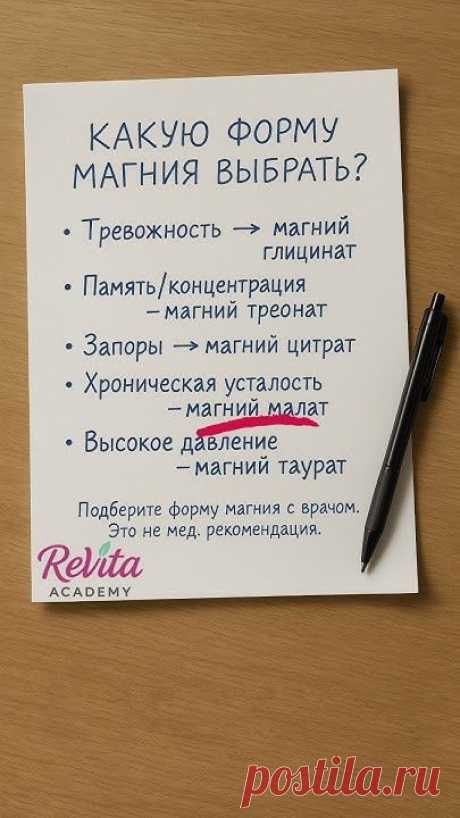 КАКУЮ ФОРМУ
МАГНИЯ ВЫБРАТЬ?
• Тревожность → магний
глицинат
• Память/концентрация
– магний треонат
• Запоры → магний цитрат
• Хроническая усталость
– магний малат
• Высокое давление
– магний таурат
Подберите форму магния с врачом.
Это не мед. рекомендация.
ReVita
ACADEMY
postila.ru